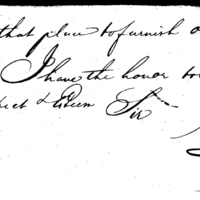 that place to furnish
I have the honor to
pect & Esteem Sir